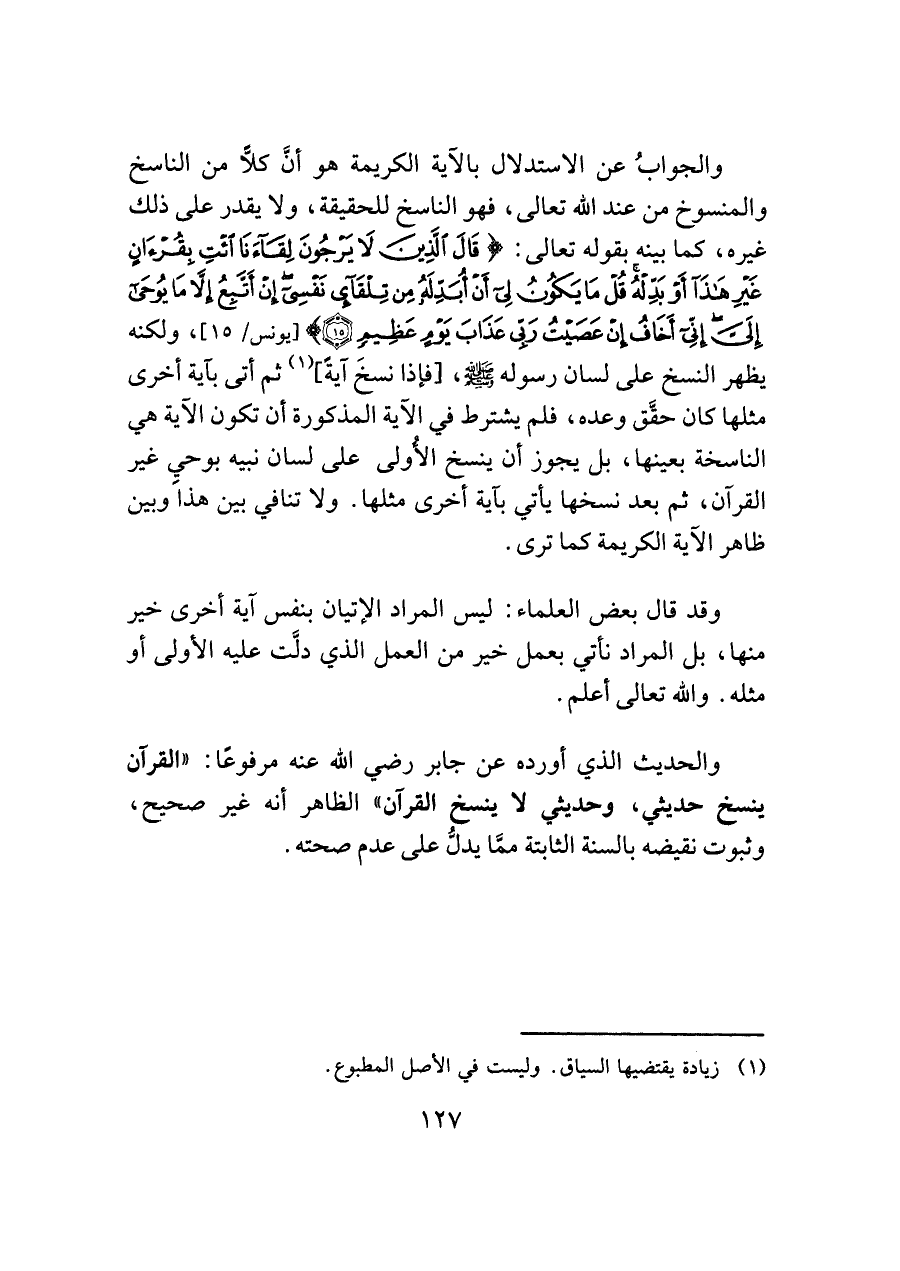 والجوابُ عن الاستدلال بالآية الكريمة هو أنَّ كلاًّ من الناسخ
والمنسوخ من عند الله تعالى، فهو الناسخ للحقيقة، ولا يقدر على ذلك
غيره، كما بينه بقوله تعالى: ﴿ قَالَ ٱلَّذِينَ لَا يَرْجُونَ لِقَآءَنَا ٱئْتِ بِقُرْءَانٍ
غَيْرِ هَٰذَآ أَوْ بَدِّلْهُۚ قُلْ مَا يَكُونُ لِىٓ أَنْ أُبَدِّلَهُۥ مِن تِلْقَآىِٕ نَفْسِىٓۖ إِنْ أَتَّبِعُ إِلَّا مَا يُوحَىٰٓ
إِلَىَّۖ إِنِّىٓ أَخَافُ إِنْ عَصَيْتُ رَبِّى عَذَابَ يَوْمٍ عَظِيمٍ ١٥﴾ [يونس/ ١٥]، ولكنه
يظهر النسخ على لسان رسوله ﷺ، [فإذا نسخَ آيةً](١) ثم أتى بآية أخرى
مثلها كان حقَّق وعده، فلم يشترط في الآية المذكورة أن تكون الآية هي
الناسخة بعينها، بل يجوز أن ينسخ الأُولى على لسان نبيه بوحيٍ غير
القرآن، ثم بعد نسخها يأتي بآية أخرى مثلها. ولا تنافي بين هذا وبين
ظاهر الآية الكريمة كما ترى.
وقد قال بعض العلماء: ليس المراد الإتيان بنفس آية أخرى خير
منها، بل المراد نأتي بعمل خير من العمل الذي دلَّت عليه الأولى أو
مثله. والله تعالى أعلم.
والحديث الذي أورده عن جابر رضي الله عنه مرفوعًا: «القرآن
ينسخ حديثي، وحديثي لا ينسخ القرآن» الظاهر أنه غير صحيح،
وثبوت نقيضه بالسنة الثابتة ممَّا يدلُّ على عدم صحته.
(١) زيادة يقتضيها السياق. وليست في الأصل المطبوع.
١٢٧